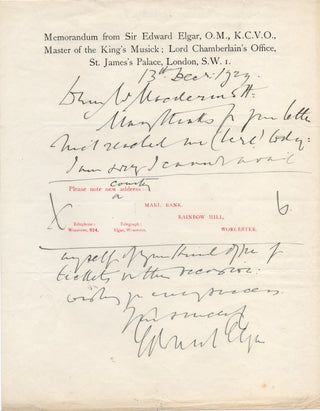 Memorandum from Sir Edward Elgar, O.M., K.C.V.O.,
Master of the King's Musick; Lord Chamberlain's Office,
St. James's Palace, London, S.W. 1.
13th Decr: 1929.
Dear Mr
Many thanks for your letter
reached me (here) today:
I am sorry I cannot avail
Please note new address:
country
a
MARL BANK,
X
6.
RAINBOW HILL,
Telephone:
Telegraph:
Worcester, 924.
Elgar, Worcester.
WORCESTER.
myself of your kind offer of
tickets on the occasion:
wishing you every success
Yours sincerely
Edward Elgar